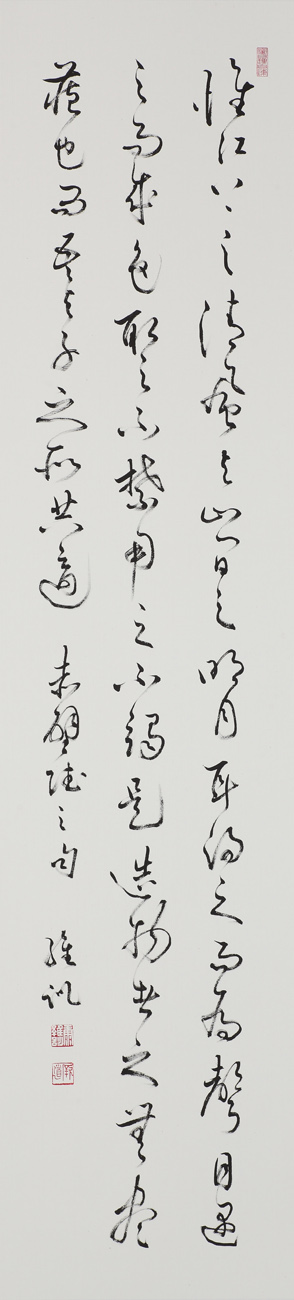 惟江上之清風与山間之明月耳得之而為聲目遇
之而成色取之不禁用之不竭是造物者之無盡
藏也而吾与子之所共適 赤壁賦之句 維